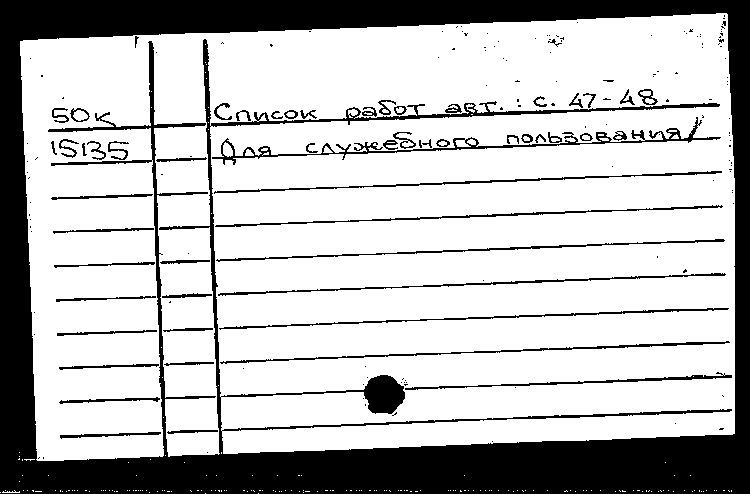 50к Список работ авт. : с. 47-48.
15135 Для служебного пользования/